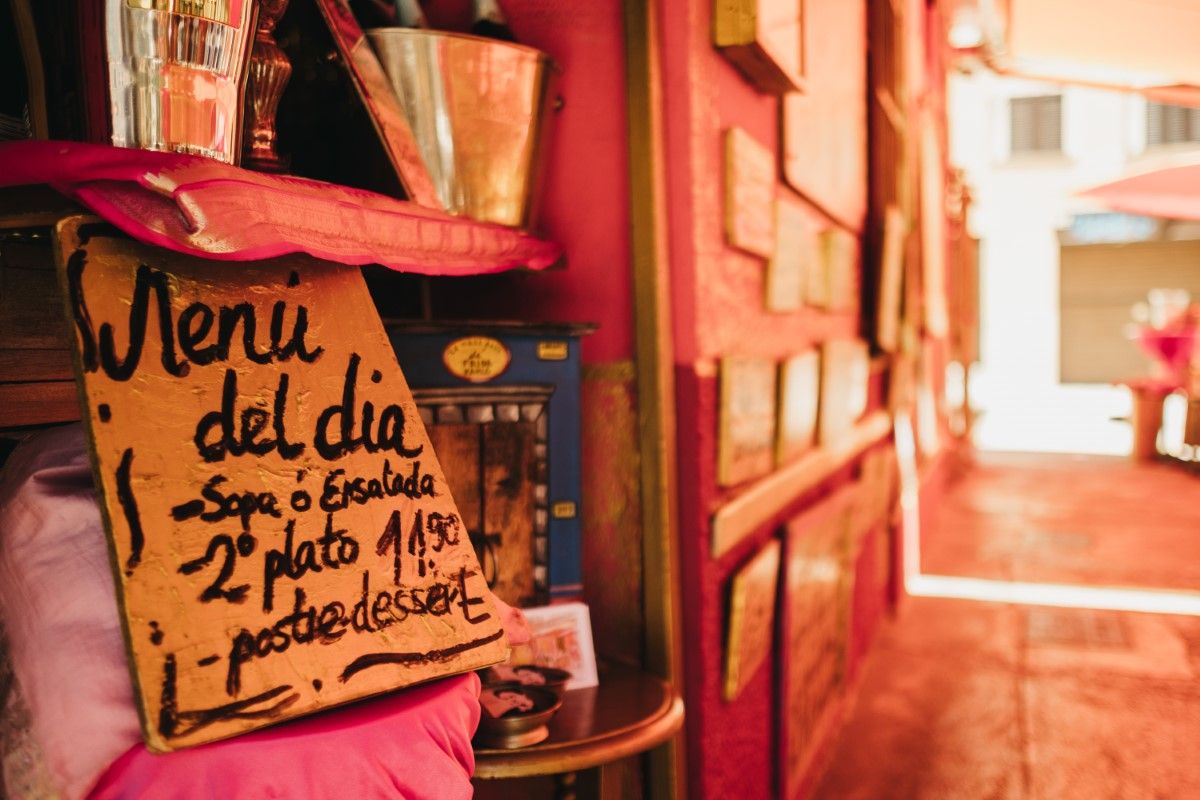 Menú
del dia
- Sopa ó Ensalada
- 2º plato 11'90
- postre dessert